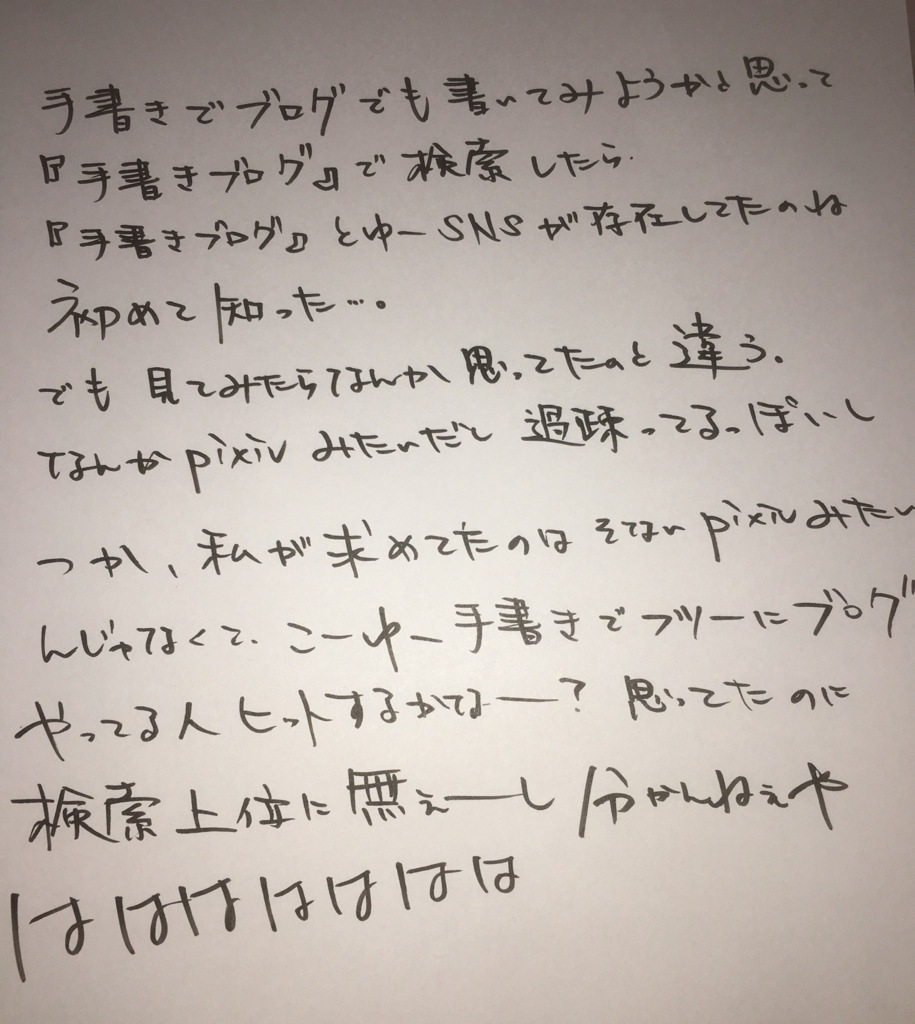 手書きでブログでも書いてみようかと思って
『手書きブログ』で検索したら
『手書きブログ』とゆーSNSが存在してたのね
初めて知った…。
でも 見てみたらなんか思ってたのと違う。
なんかpixivみたいだし 過疎ってるっぽいし
つか、私が求めてたのは そんなpixivみたい
んじゃなくて、こーゆー手書きでフツーにブログ
やってる人ヒットするかなー?思ってたのに
検索上位に無ぇーし 分かんねぇや
はははははは は